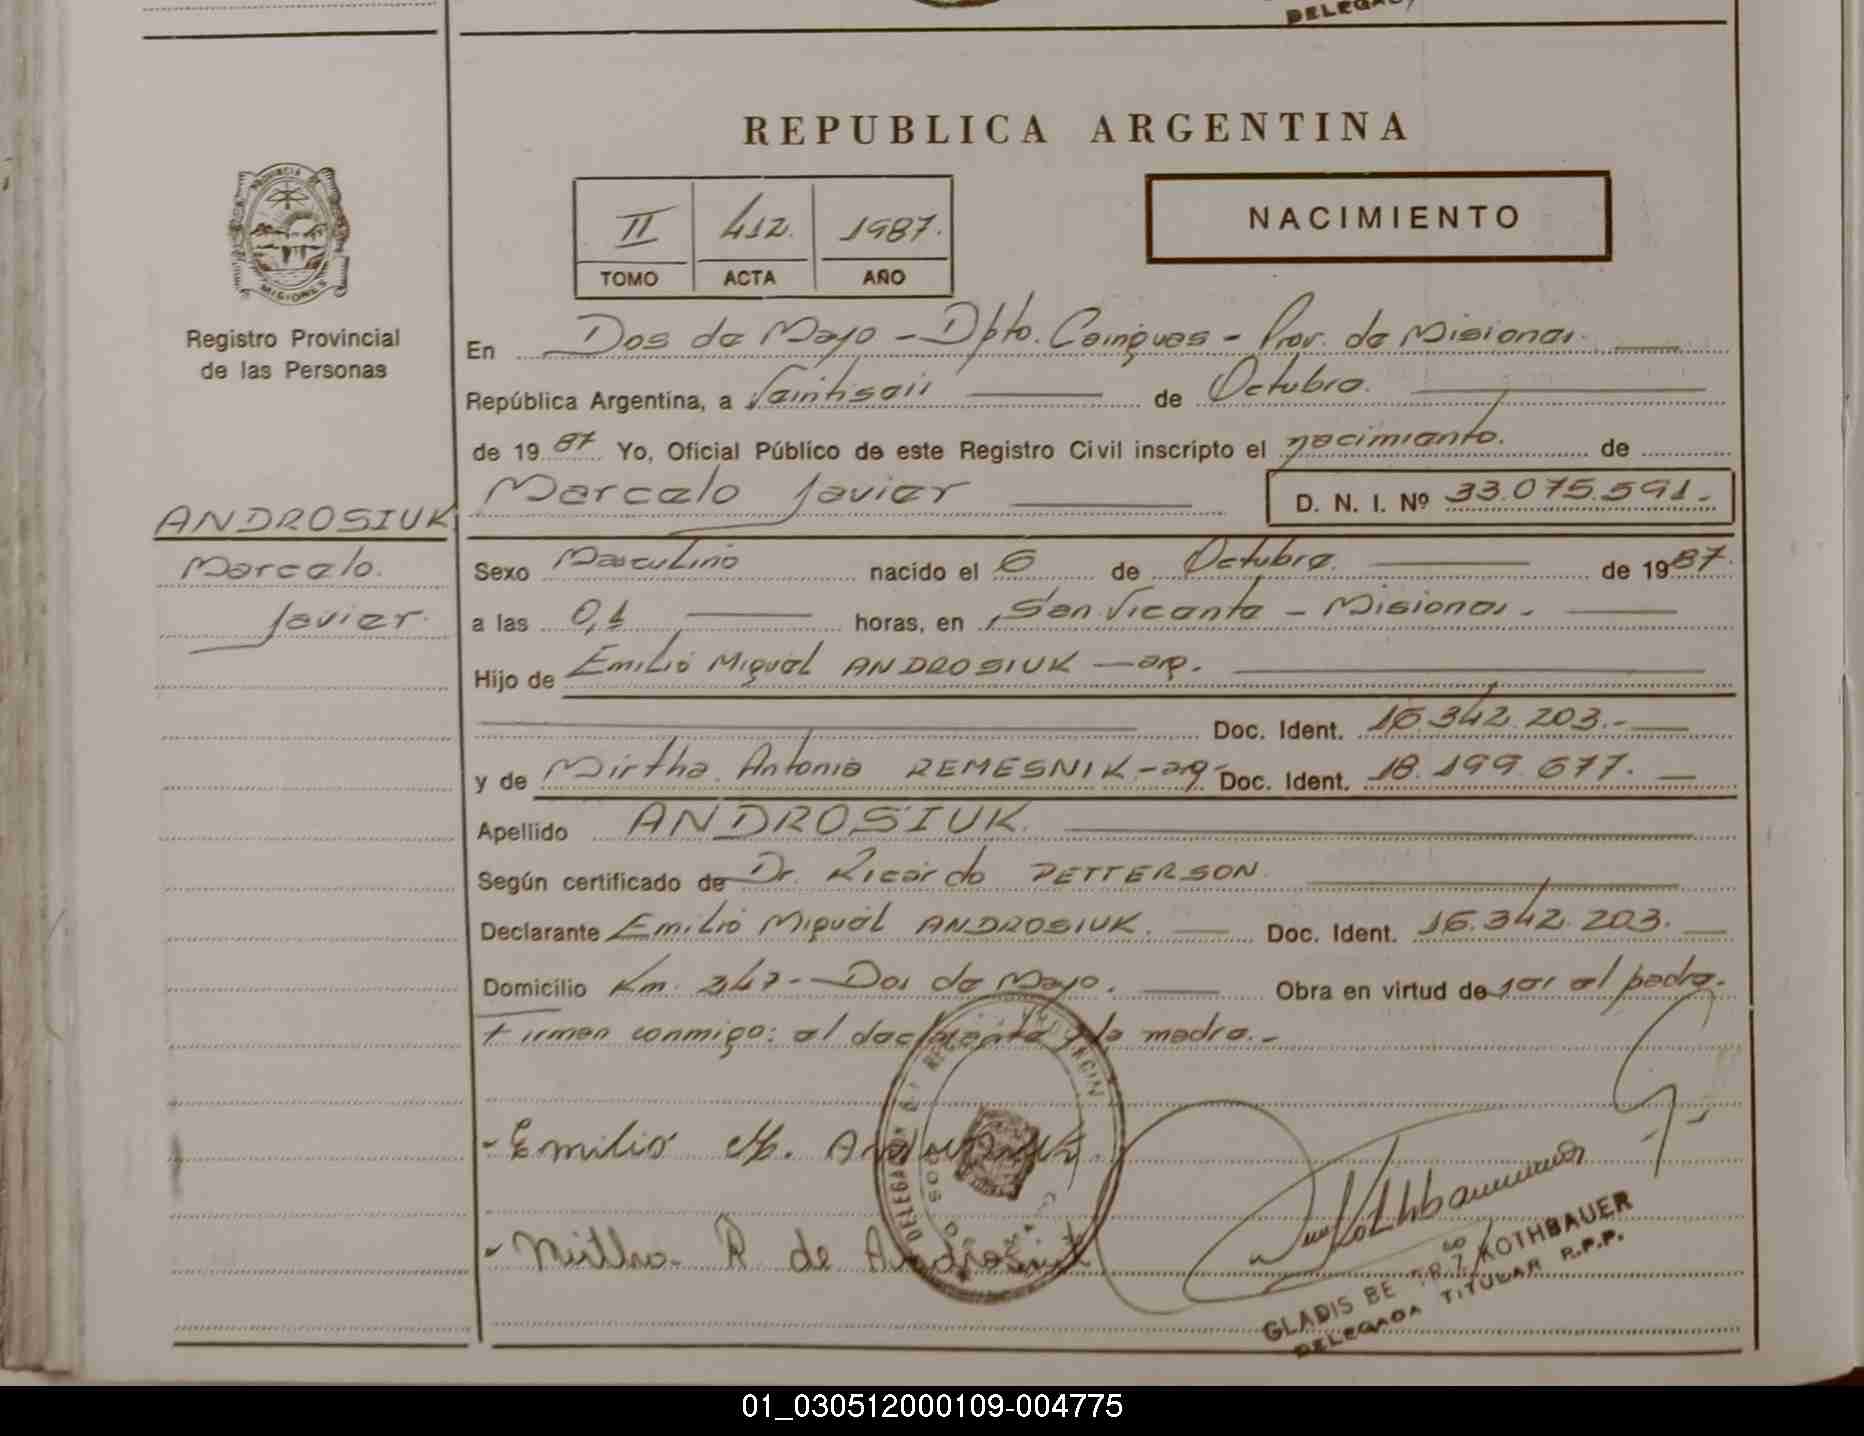 DELEGAD
REPUBLICA ARGENTINA
PROVINCIA DE
MISIONES
Registro Provincial
de las Personas
II 412. 1987.
TOMO ACTA AÑO
NACIMIENTO
En Dos de Mayo - Dpto. Cainguas - Prov. de Misiones.
República Argentina, a Veintiseis de Octubre.
de 1987 Yo, Oficial Público de este Registro Civil inscripto el nacimiento. de
Marcelo Javier D. N. I. Nº 33.075.591.-
ANDROSIUK
Marcelo.
Javier.
Sexo Masculino nacido el 6 de Octubre. de 1987.
a las 0,1 horas, en San Vicente - Misiones.
Hijo de Emilio Miguel ANDROSIUK - arg.
Doc. Ident. 16.342.203.-
y de Mirtha Antonia REMESNIK - arg- Doc. Ident. 18.199.677.
Apellido ANDROSIUK.
Según certificado de Dr. Ricardo PETTERSON.
Declarante Emilio Miguel ANDROSIUK. Doc. Ident. 16.342.203.
Domicilio Km. 247 - Dos de Mayo. Obra en virtud de ser el padre.
Firman conmigo: el declarante y la madre.-
- Emilio M. Androsiuk.
- Mirtha R de Androsiuk
DELEGACION
DOS
Kothbauer
GLADIS KOTHBAUER
DELEGADA TITULAR R.P.P.
01_030512000109-004775